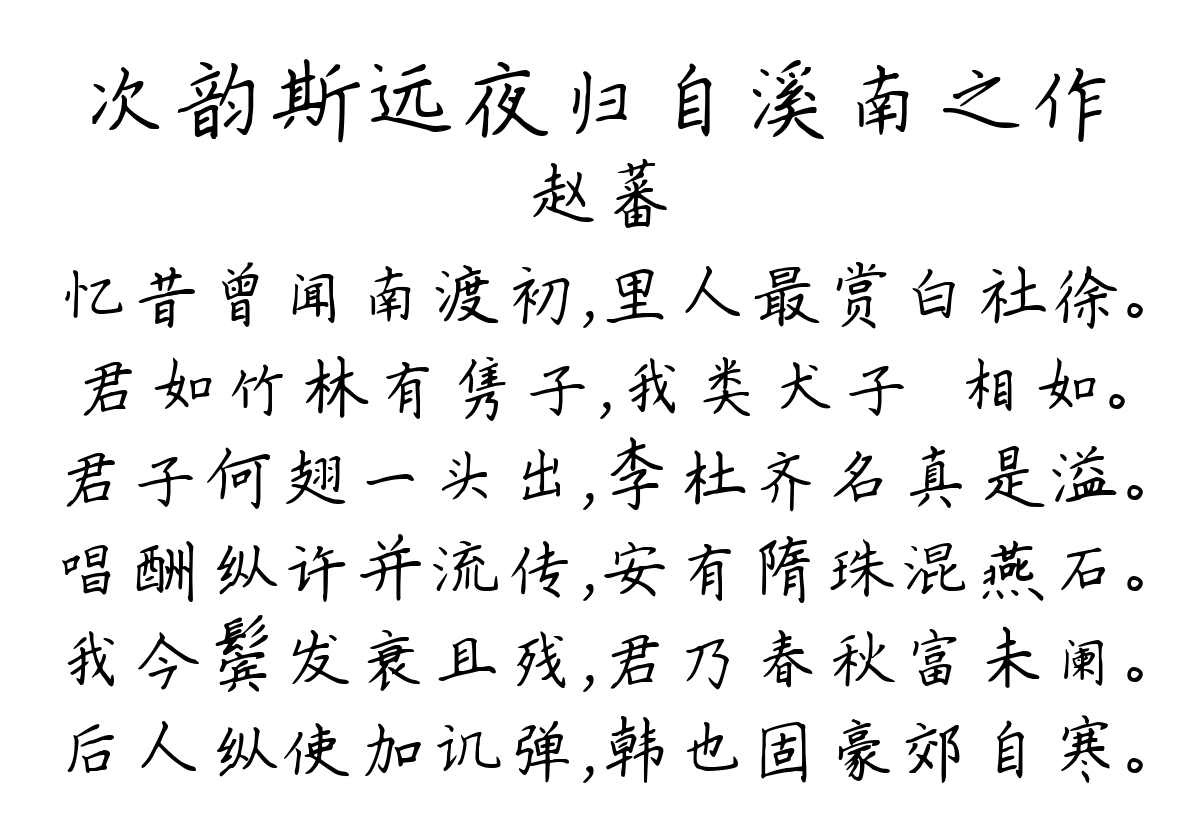 次韵斯远夜归自溪南之作
赵蕃
忆昔曾闻南渡初,里人最赏白社徐。
君如竹林有隽子,我类犬子 相如。
君子何翅一头出,李杜齐名真是溢。
唱酬纵许并流传,安有隋珠混燕石。
我今鬓发衰且残,君乃春秋富未阑。
后人纵使加讥弹,韩也固豪郊自寒。